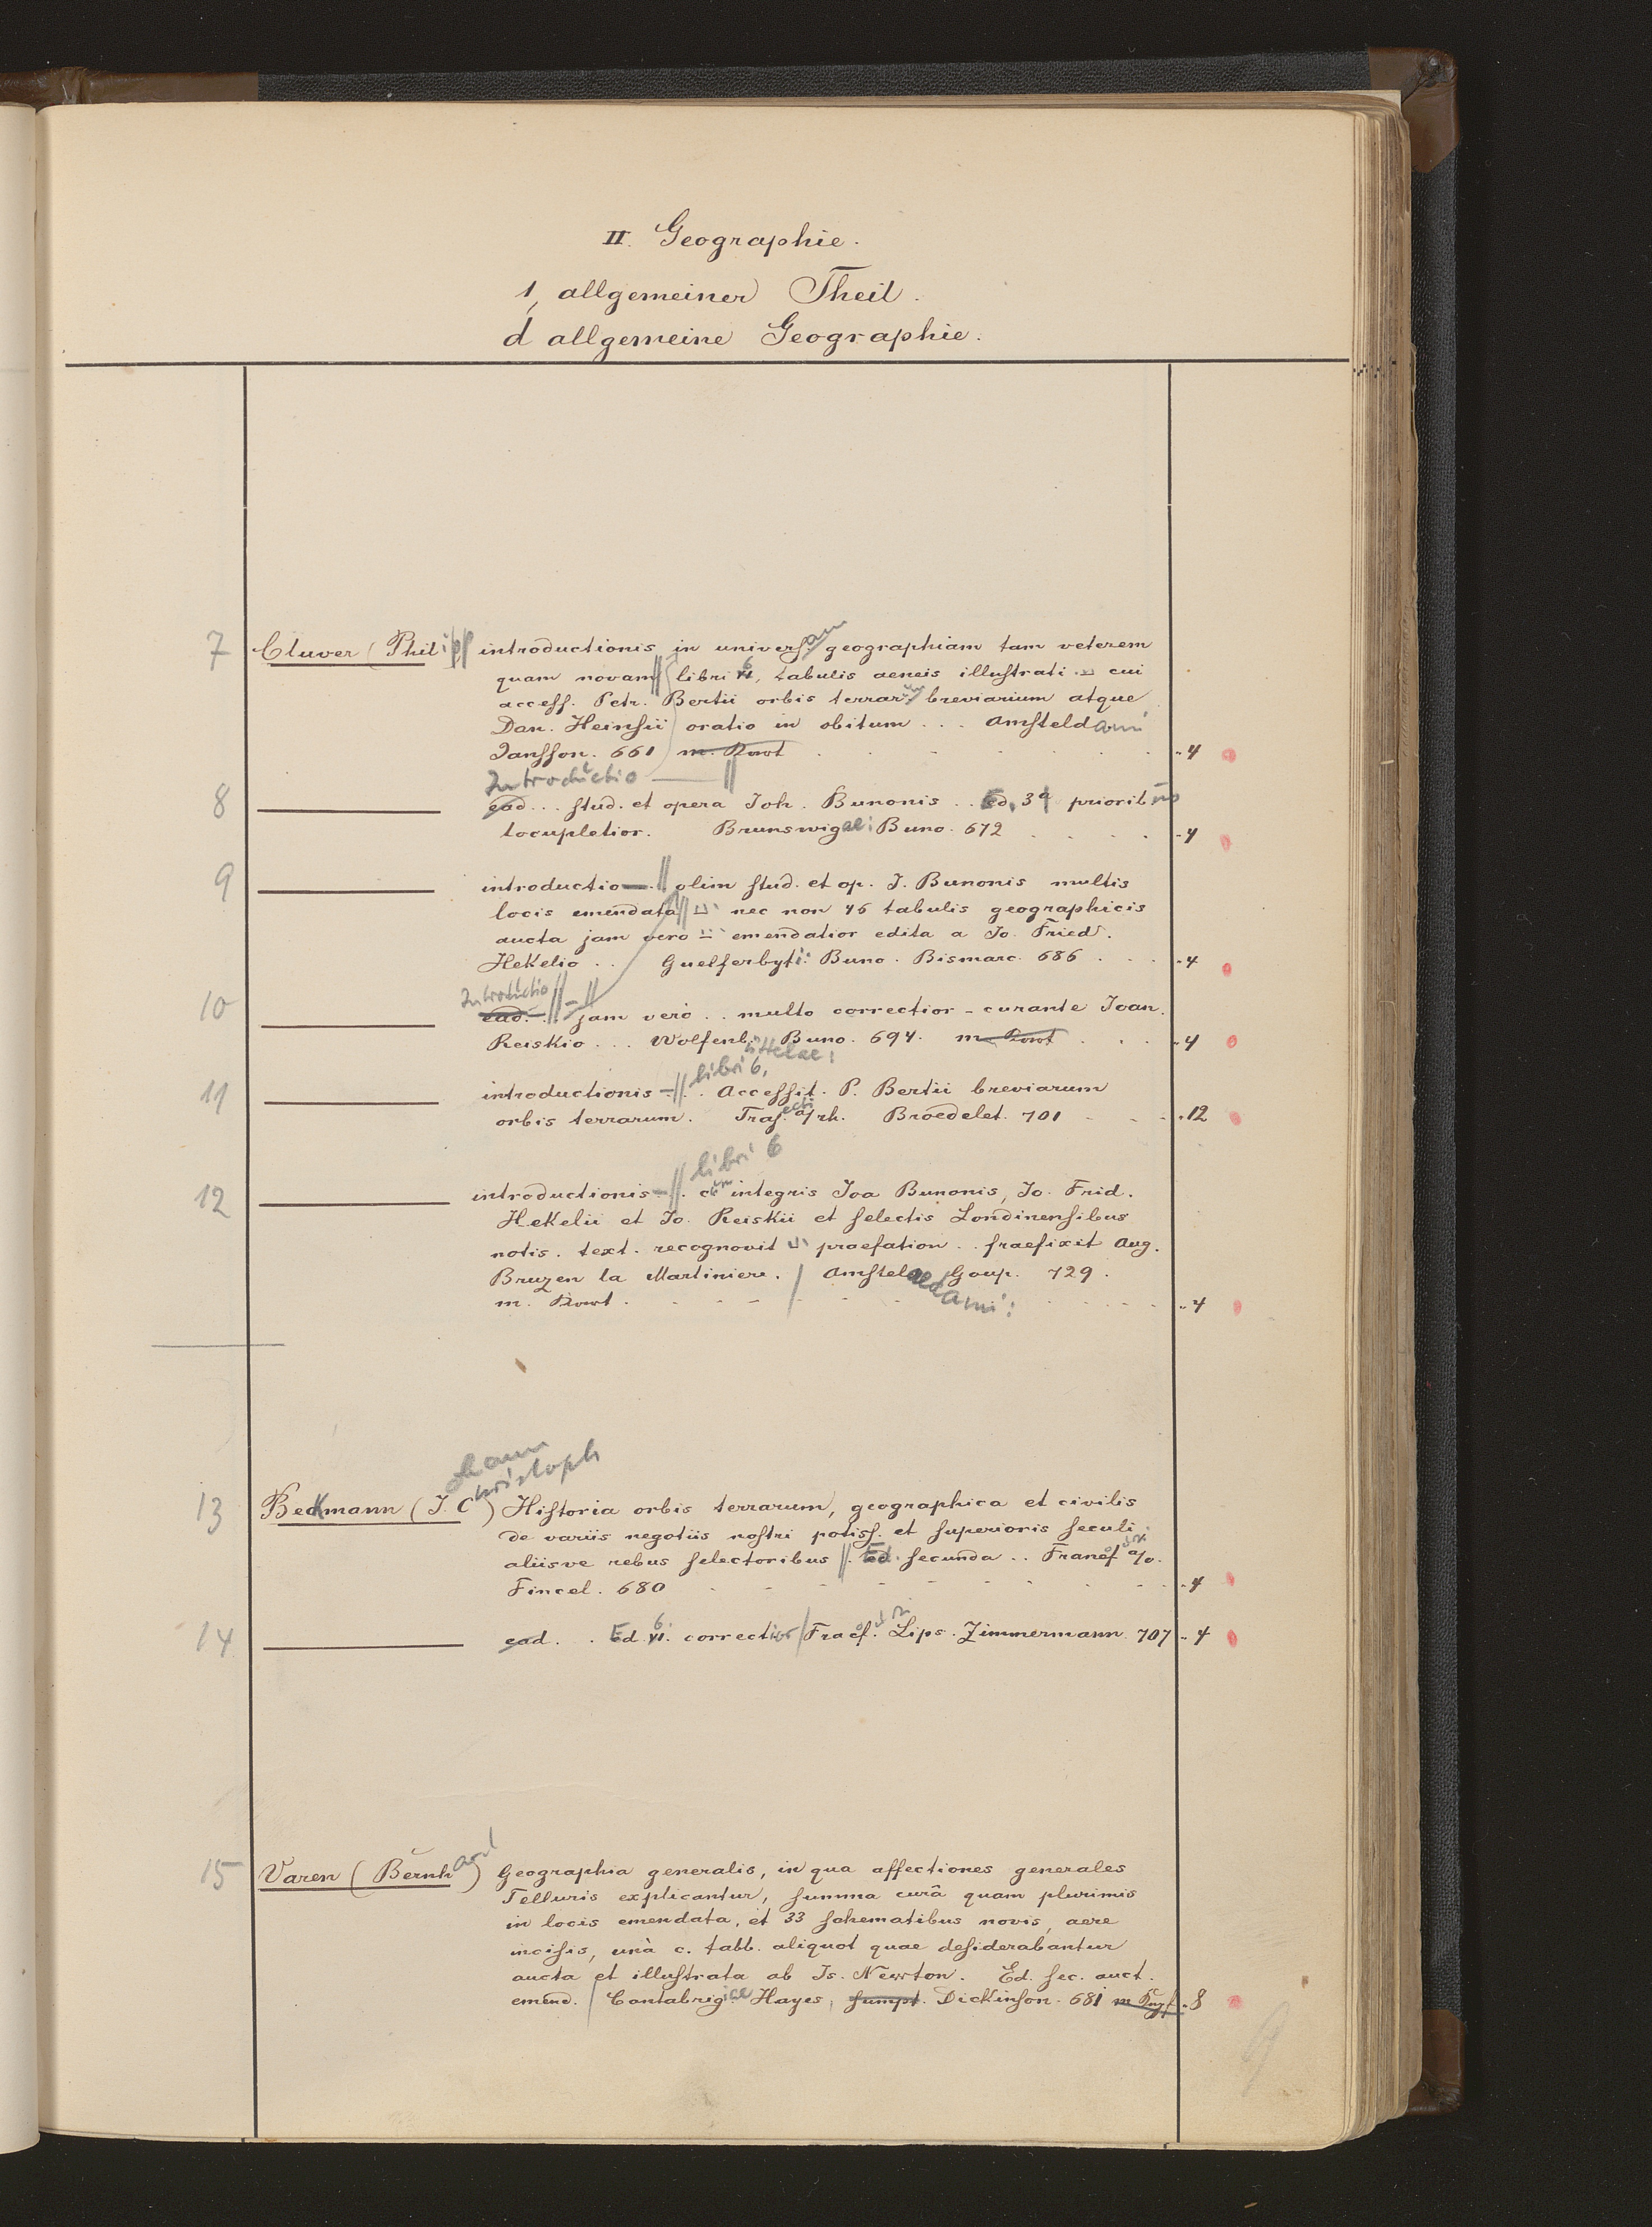 II. Geographie.
1, allgemeiner Theil.
d allgemeine Geographie.
7 Cluver (Philipp introductionis in universam geographiam tam veterem
quam novam libri 6, tabulis aeneis illustrati cui
access. Petr. Bertii orbis terrarum breviarium atque
Dan. Heinsii oratio in obitum . . . Amsteldami
Jansson. 661 4
Introductio
8 ead . . . stud. et opera Joh. Bunonis . . Ed. 3a priorib
locupletior. Brunswigae: Buno. 672 . . . . 4
9 introductio olim stud. et op. J. Bunonis multis
locis emendata nec non 46 tabulis geographicis
aucta jam vero emendatior edita a Jo. Fried.
Hekelio . . Guelferbyti: Buno. Bismarc. 686 . . . 4
Introductio
10 ead. . . jam vero . . multo correctior - curante Joan.
Reiskio . . . Wolfenb. Buno. 694. . . . 4
libri 6,
11 introductionis . Accessit. P. Bertii breviarum
orbis terrarum. Traj. a/rh. Broedelet. 701 - - - 12
libri 6
12 introductionis . cum integris Joa Bunonis, Jo. Frid.
Hekelii et Jo. Reiskii et selectis Londinensibus
notis. text. recognovit praefation . . fraefixit Aug.
Bruzen la Martiniere. / Amstelaedami: Goup. 729.
m. 4
hann
hristoph
13 Beckmann (J. C) Historia orbis terrarum, geographica et civilis
de variis negotiis nostri potiss. et superioris seculi
aliisve rebus selectoribus . Ed. secunda . . Francof a/o.
Fincel. 680 - - - - - - 4
14 ead. . Ed. 6. correctior / Fracf. Lips. Zimmermann. 707 4
15 Varen (Bernhard) Geographia generalis, in qua affectiones generales
Telluris explicantur, summa curâ quam plurimis
in locis emendata, et 33 schematibus novis, aere
incisis, unà c. tabb. aliquot quae desiderabantur
aucta et illustrata ab Is. Newton. Ed. sec. auct.
emend. / Cantabrigiae Hayes, sumpt. Dickinson. 681 8
9